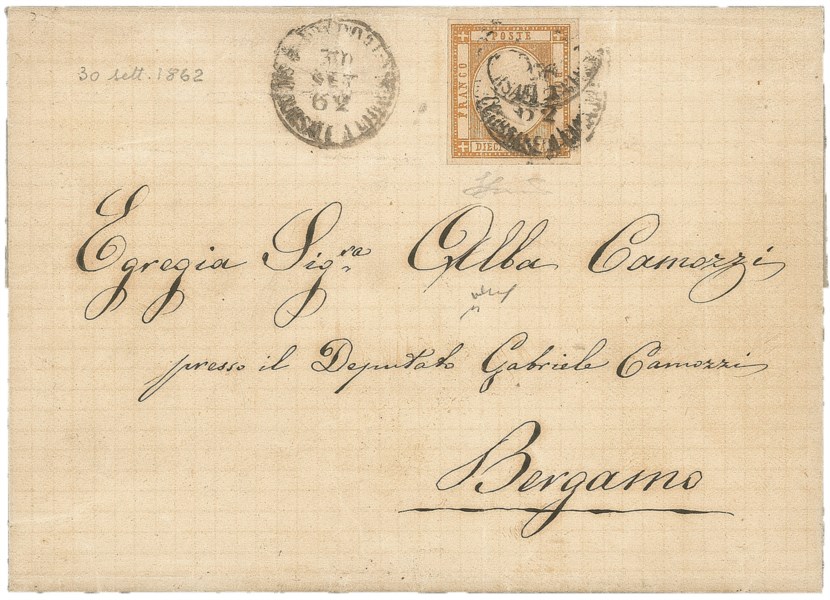 30 sett. 1862
30
SET
62
FRANCO
POSTE
DIECI
Egregia Sig.ra Alba Camozzi
presso il Deputato Gabriele Camozzi
Bergamo